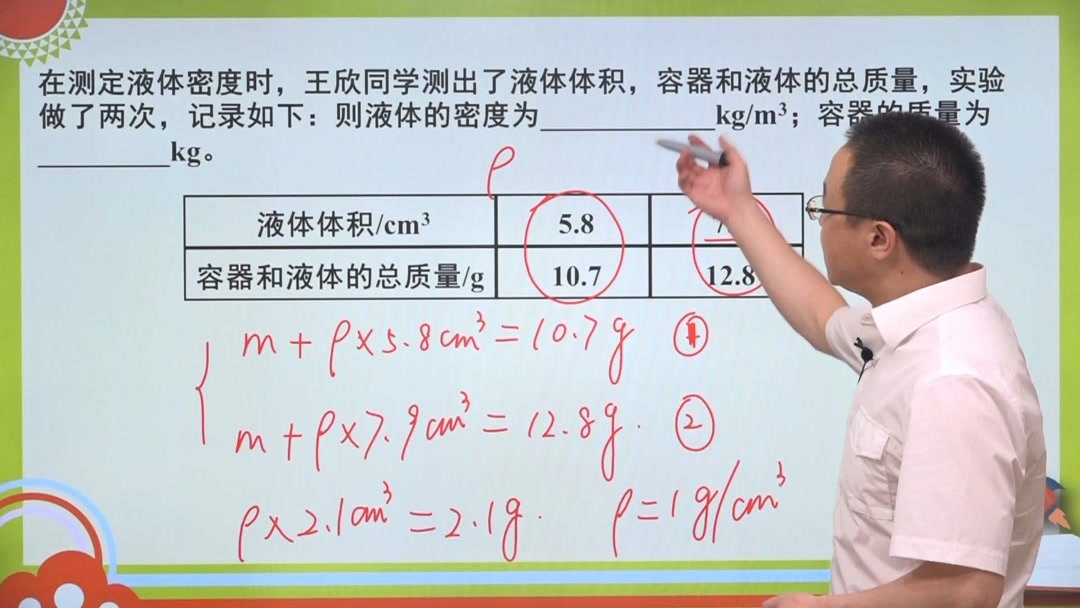 在测定液体密度时，王欣同学测出了液体体积，容器和液体的总质量，实验
做了两次，记录如下：则液体的密度为____________kg/m³；容器的质量为
_________kg。
ρ
液体体积/cm³ 5.8 7
容器和液体的总质量/g 10.7 12.8
m+ρ×5.8cm³=10.7g ①
m+ρ×7.9cm³=12.8g. ②
ρ×2.1cm³=2.1g. ρ=1g/cm³